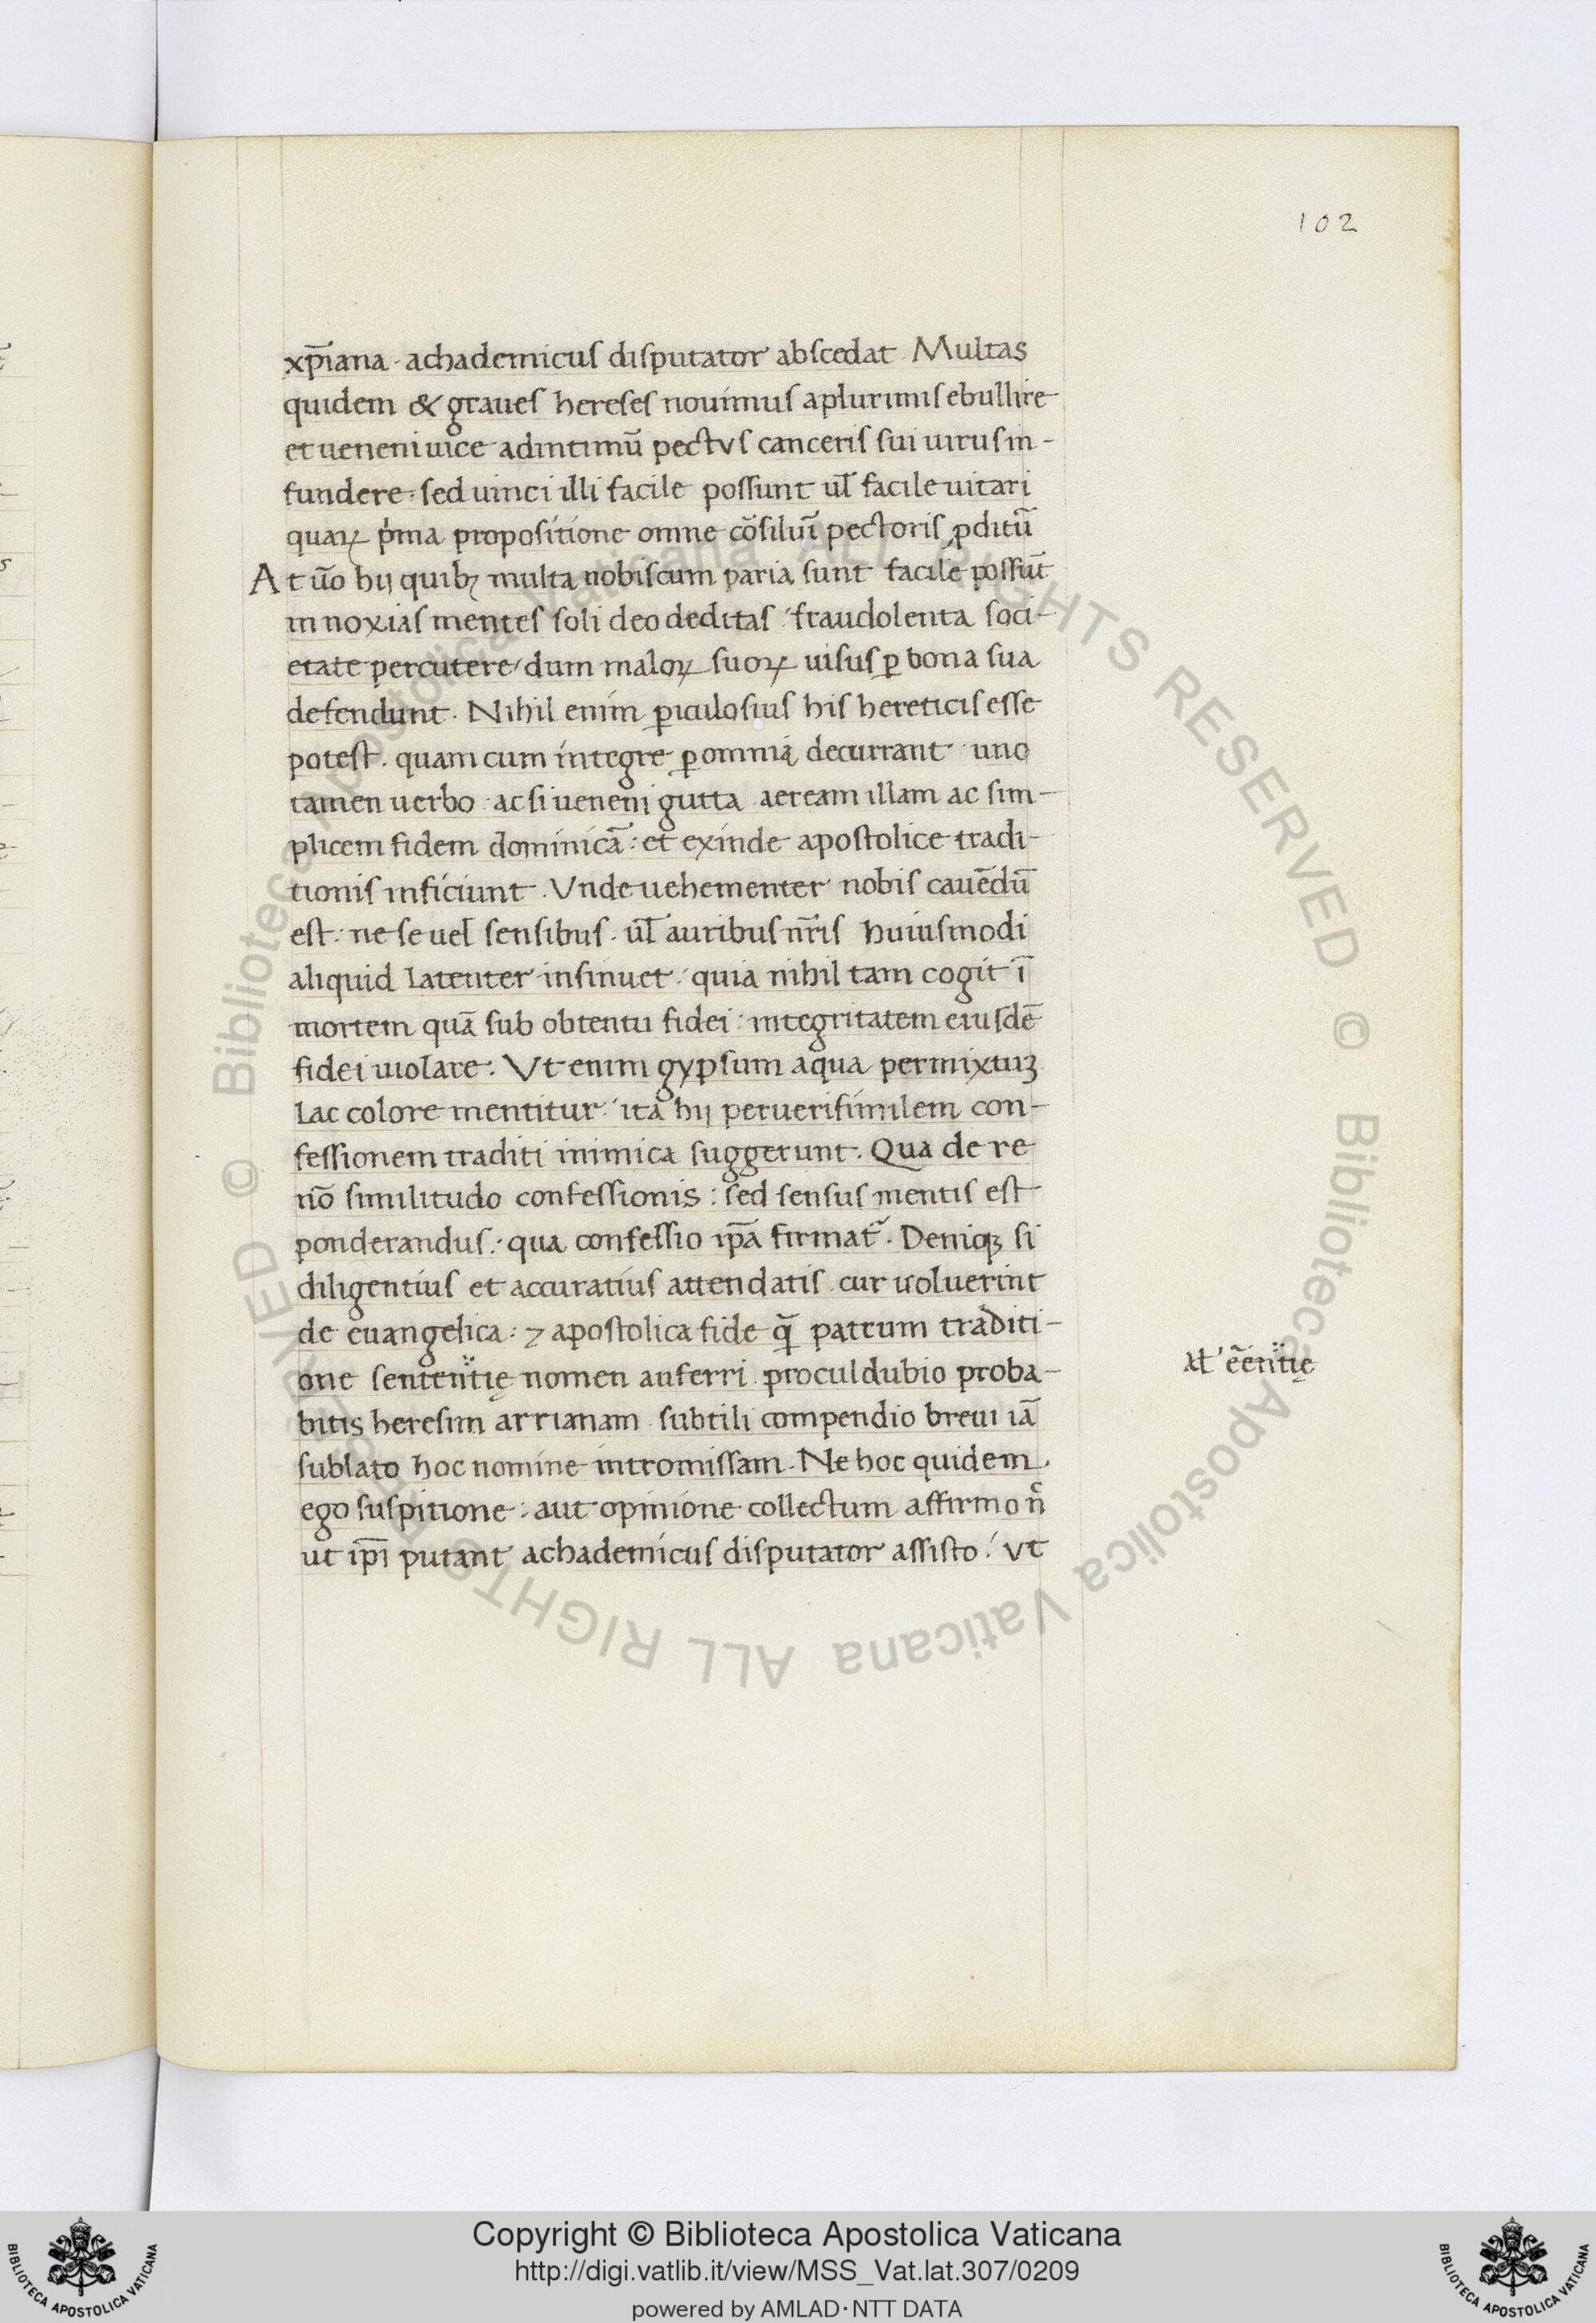 102
xp̅iana · achademicus disputator abscedat Multas
quidem & graues hereses nouimus a plurimis ebullire
et ueneni uice ad intimu̅ pectus canceris sui uirus in-
fundere: sed uinci illi facile possunt ul̅ facile uitari
quaꝝ p̍ma propositione omne co̅siluı̅ pectoris ꝓditu̅
At u̅o hij quibꝫ multa nobiscum paria sunt facile possu̅t
innoxias mentes soli deo deditas fraudolenta soci-
etate percutere/ dum maloꝝ suoꝝ uisus ꝑ bona sua
defendunt. Nihil enim ꝑiculosius his hereticis esse
potest. quam cum integre ꝑ omnia decurrant uno
tamen uerbo · ac si ueneni gutta aeream illam ac sim-
plicem fidem dominica̅: et exinde apostolice tradi-
tionis inficiunt. Vnde uehementer nobis caue̅du̅
est: ne se uel sensibus. ul̅ auribus nr̅is huiusmodi
aliquid Latenter insinuet: quia nihil tam cogit ı̅
mortem qua̅ sub obtentu fidei: integritatem eiusde̅
fidei uiolare: Vt enim gypsum aqua permixtuꝫ
Lac colore mentitur: ita hij per uerisimilem con-
fessionem traditi inimica suggerunt. Qua de re
no̅ similitudo confessionis: sed sensus mentis est
ponderandus: qua confessio ip̅a firmat᷑. Deniqꝫ si
diligentius et accuratius attendatis cur uoluerint
de euangelica: ⁊ apostolica fide q̅ patrum traditi-
one sententię nomen auferri proculdubio proba-
bitis heresim arrianam subtili compendio breui ia̅
sublato hoc nomine intromissam. Ne hoc quidem
ego suspitione: aut opinione collectum affirmo n̅
ut ip̅i putant achademicus disputator assisto: vt
al' e̅entię
Copyright © Biblioteca Apostolica Vaticana
http://digi.vatlib.it/view/MSS_Vat.lat.307/0209
powered by AMLAD·NTT DATA
BIBLIOTECA APOSTOLICA VATICANA
BIBLIOTECA APOSTOLICA VATICANA
© Biblioteca Apostolica Vaticana ALL RIGHTS RESERVED © Biblioteca Apostolica Vaticana ALL RIGHTS RESERVED